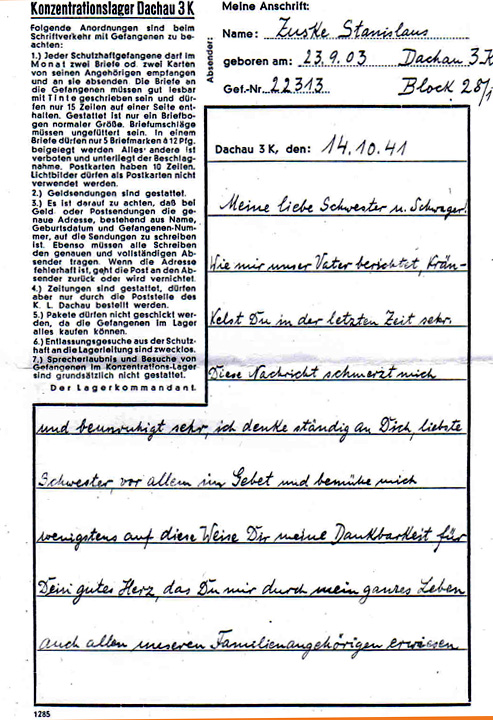 Konzentrationslager Dachau 3 K
Folgende Anordnungen sind beim
Schriftverkehr mit Gefangenen zu be-
achten:
1.) Jeder Schutzhaftgefangene darf im
Monat zwei Briefe od. zwei Karten
von seinen Angehörigen empfangen
und an sie absenden. Die Briefe an
die Gefangenen müssen gut lesbar
mit Tinte geschrieben sein und dür-
fen nur 15 Zeilen auf einer Seite ent-
halten. Gestattet ist nur ein Briefbo-
gen normaler Größe. Briefumschläge
müssen ungefüttert sein. In einem
Briefe dürfen nur 5 Briefmarken à 12 Pfg.
beigelegt werden. Alles andere ist
verboten und unterliegt der Beschlag-
nahme. Postkarten haben 10 Zeilen.
Lichtbilder dürfen als Postkarten nicht
verwendet werden.
2.) Geldsendungen sind gestattet.
3.) Es ist darauf zu achten, daß bei
Geld- oder Postsendungen die ge-
naue Adresse, bestehend aus Name,
Geburtsdatum und Gefangenen-Num-
mer, auf die Sendungen zu schreiben
ist. Ebenso müssen alle Schreiben
den genauen und vollständigen Ab-
sender tragen. Wenn die Adresse
fehlerhaft ist, geht die Post an den Ab-
sender zurück oder wird vernichtet.
4.) Zeitungen sind gestattet, dürfen
aber nur durch die Poststelle des
K. L. Dachau bestellt werden.
5.) Pakete dürfen nicht geschickt wer-
den, da die Gefangenen im Lager
alles kaufen können.
6.) Entlassungsgesuche aus der Schutz-
haft an die Lagerleitung sind zwecklos.
7.) Sprecherlaubnis und Besuche von
Gefangenen im Konzentrations-Lager
sind grundsätzlich nicht gestattet.
Der Lagerkommandant.
Absender:
Meine Anschrift:
Name: Zuske Stanislaus
geboren am: 23.9.03 Dachau 3K
Gef.-Nr. 22313 Block 28/1
Dachau 3 K, den: 14.10.41
Meine liebe Schwester u. Schwager!
Wie mir unser Vater berichtet, Krän-
Kelst Du in der letzten Zeit sehr.
Diese Nachricht schmerzt mich
und beunruhigt sehr, ich denke ständig an Dich, liebste
Schwester, vor allem im Gebet und bemühe mich
wenigstens auf diese Weise Dir meine Dankbarkeit für
Dein gutes Herz, das Du mir durch mein ganzes Leben
auch allen unseren Familienangehörigen erwiesen
1285